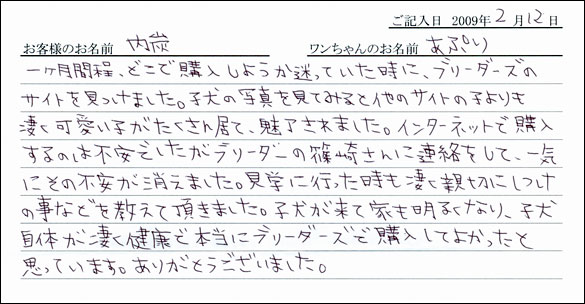 ご記入日 2009年 2 月 12 日
お客様のお名前 内炭 ワンちゃんのお名前 あぷり
一ヶ月間程、どこで購入しようか迷っていた時に、ブリーダーズの
サイトを見つけました。子犬の写真を見てみると他のサイトの子よりも
凄く可愛い子がたくさん居て、魅了されました。インターネットで購入
するのは不安でしたがブリーダーの篠崎さんに連絡をして、一気
にその不安が消えました。見学に行った時も凄く親切にしつけ
の事などを教えて頂きました。子犬が来て家も明るくなり、子犬
自体が凄く健康で本当にブリーダーズで購入してよかったと
思っています。ありがとうございました。